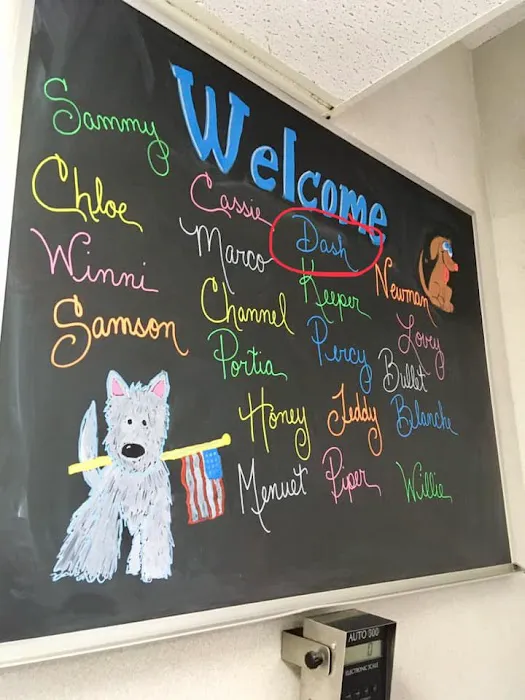 Welcome
Sammy
Chloe
Winni
Samson
Cassie
Marco
Channel
Portia
Honey
Menuet
Dash
Keeper
Percy
Teddy
Piper
Newman
Lovey
Bullet
Blanche
Willie
AUTO 300
0
ELECTRONIC SCALE